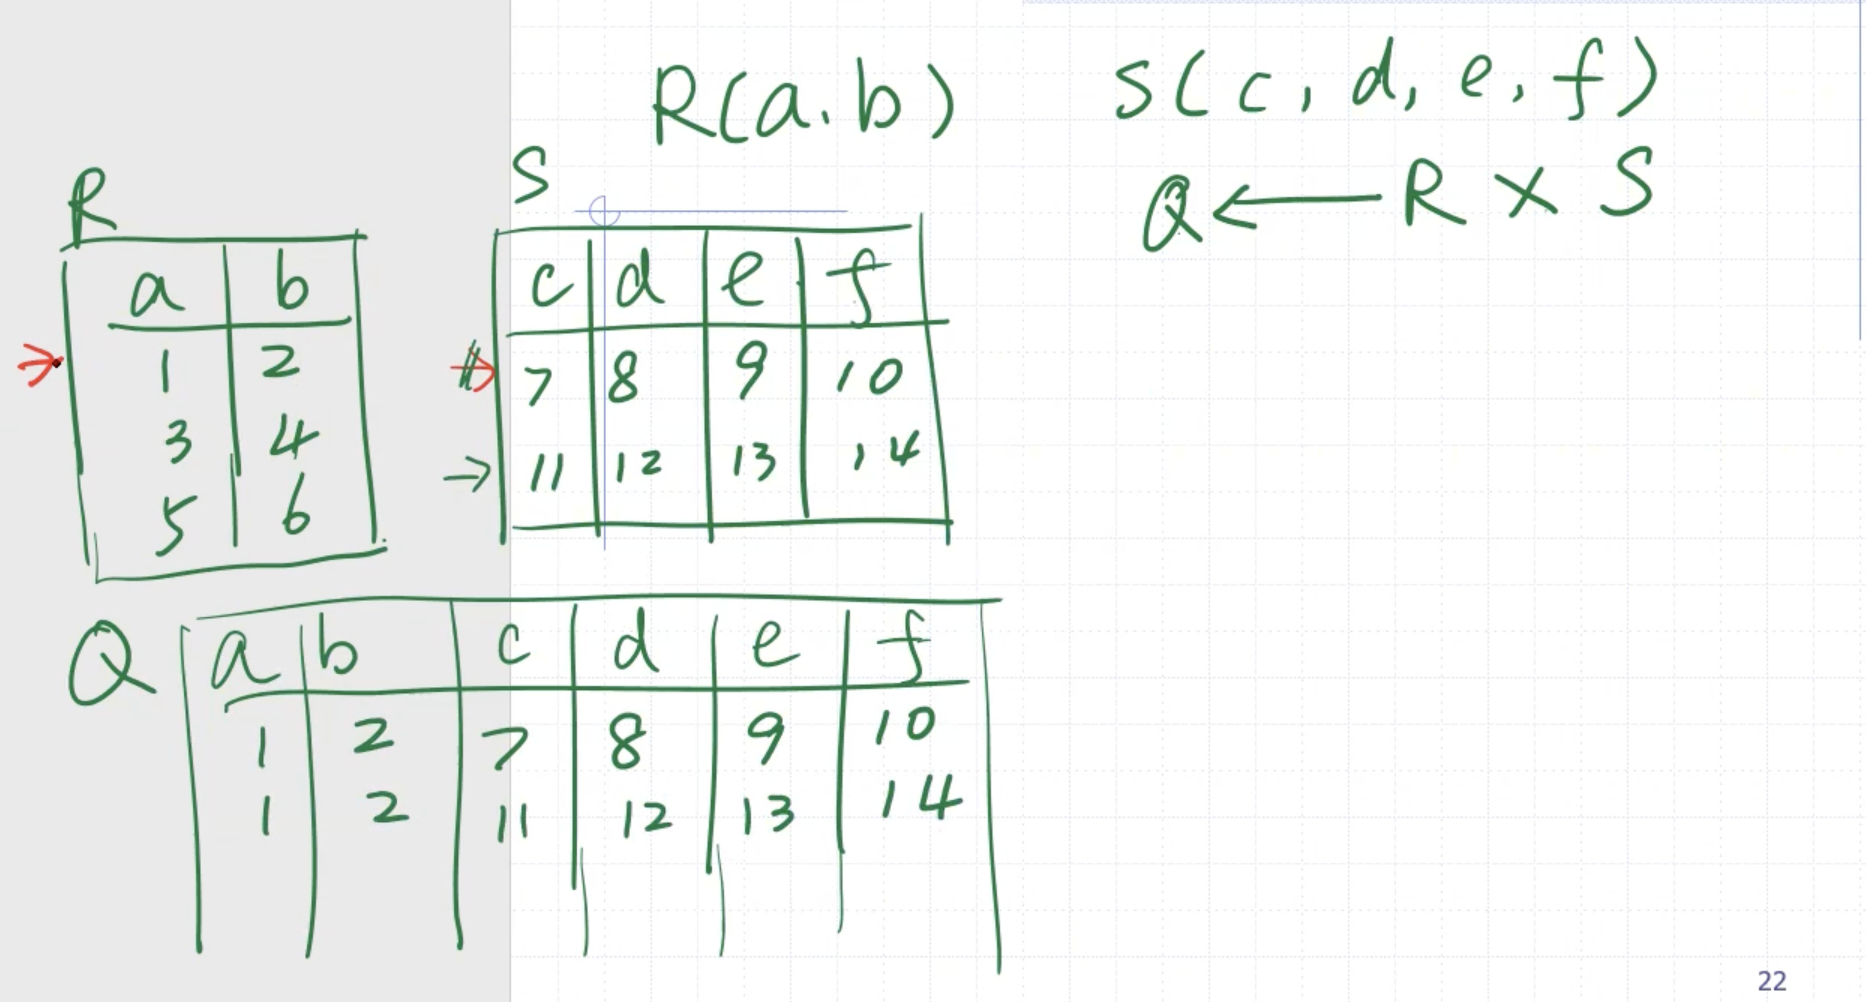 R(a.b) S(c, d, e, f)
Q ← R × S
R
a b
1 2
3 4
5 6
S
c d e f
7 8 9 10
11 12 13 14
Q
a b c d e f
1 2 7 8 9 10
1 2 11 12 13 14
22